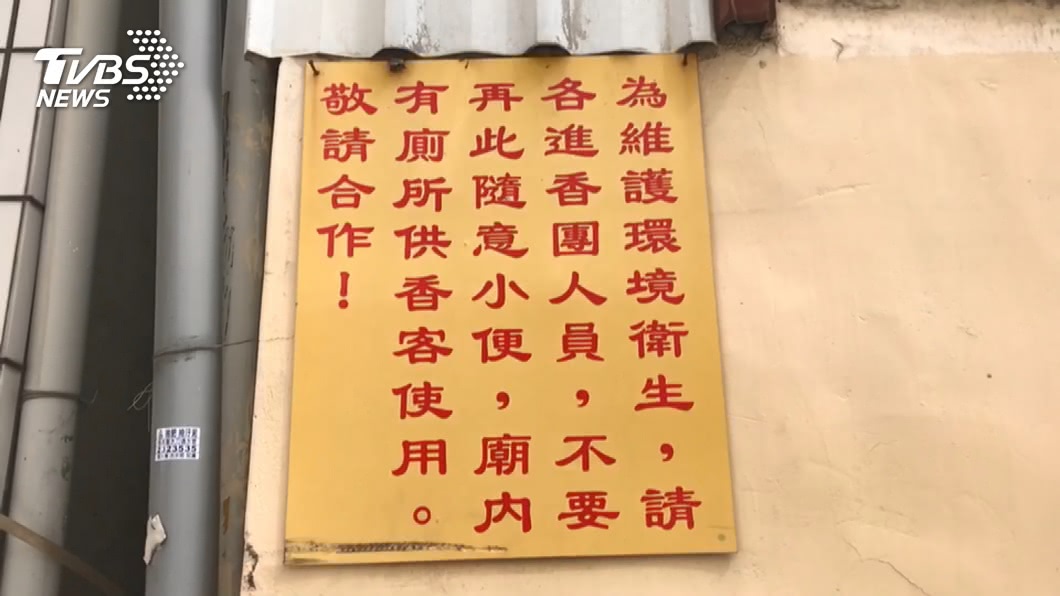 TVBS
NEWS
為維護環境衛生，請
各進香團人員，不要
再此隨意小便，廟內
有廁所供香客使用。
敬請合作！
2323535